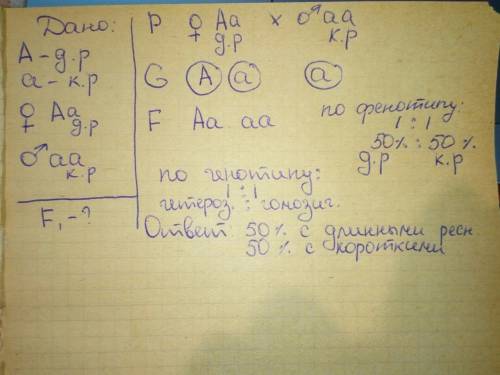 Дано:
А - д.р
а - к.р
♀ Аа
д.р
♂ аа
к.р
F₁ - ?
P ♀ Аа x ♂ аа
д.р к.р
G А а а
F Аа аа
по фенотипу:
1 : 1
50% : 50%
д.р к.р
по генотипу:
1 : 1
гетероз. : гомозиг.
Ответ: 50% с длинными ресн
50% с короткими